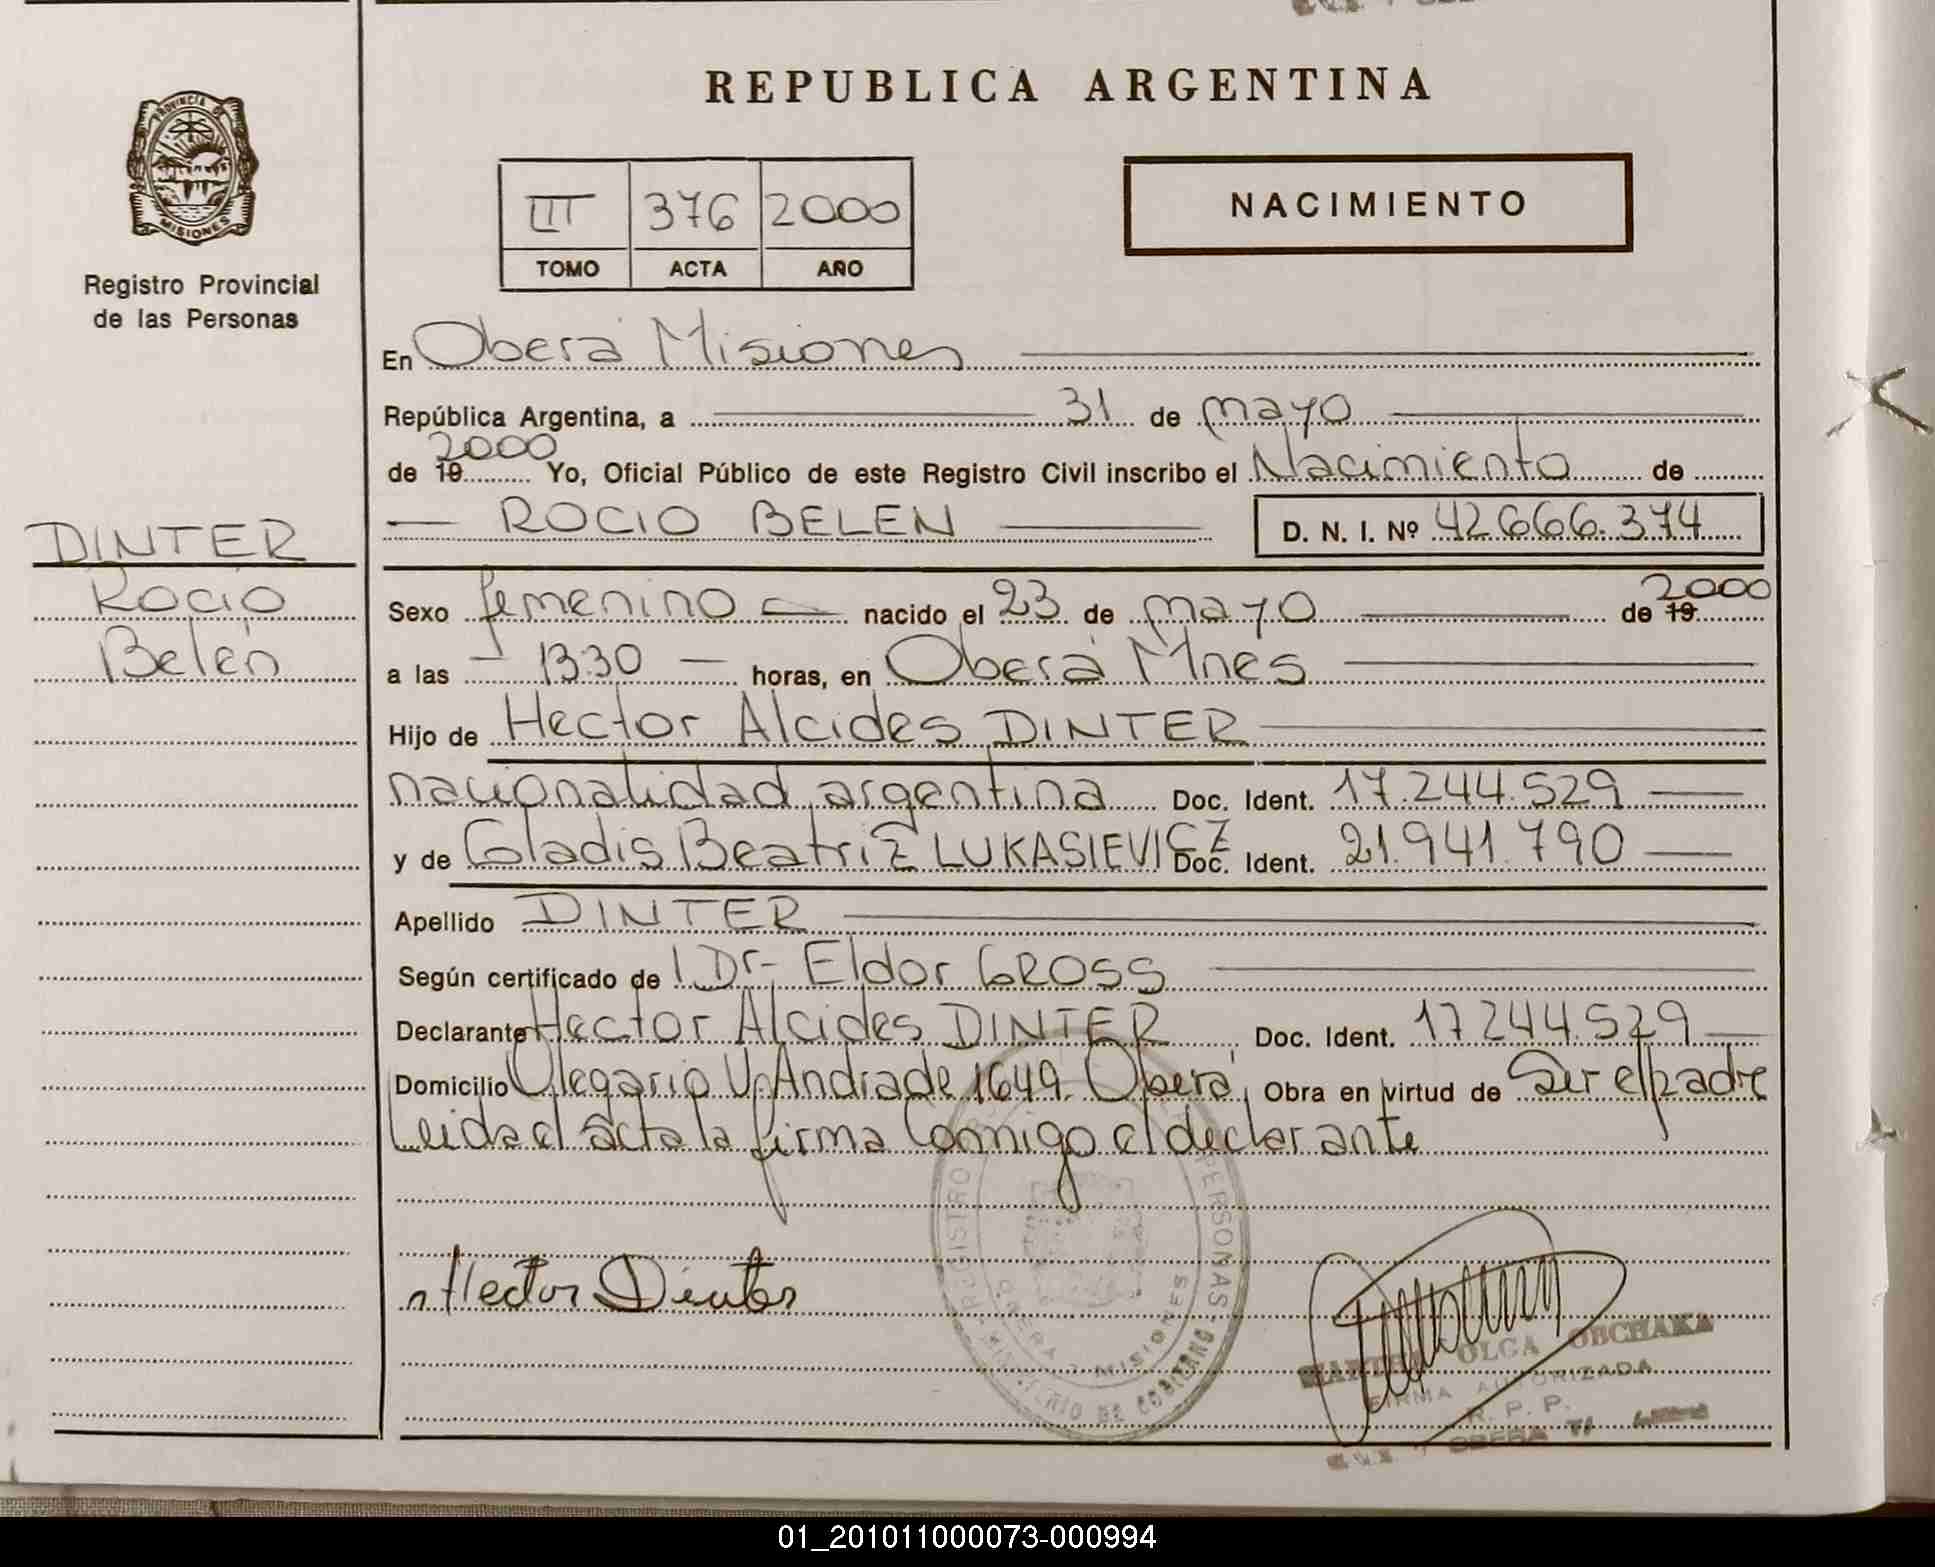 REPUBLICA ARGENTINA
PROVINCIA DE
MISIONES
Registro Provincial
de las Personas
III 376 2000
TOMO ACTA AÑO
NACIMIENTO
En Oberá Misiones
República Argentina, a 31 de mayo
de 19 2000 Yo, Oficial Público de este Registro Civil inscribo el Nacimiento de
ROCIO BELEN D. N. I. Nº 42.666.374
DINTER
Rocío
Belén
Sexo femenino nacido el 23 de mayo de 19 2000
a las 13:30 horas, en Oberá Mnes
Hijo de Hector Alcides DINTER
nacionalidad argentina Doc. Ident. 17.244.529
y de Gladis Beatriz LUKASIEVICZ Doc. Ident. 21.941.790
Apellido DINTER
Según certificado de Dr. Eldor GROSS
Declarante Hector Alcides DINTER Doc. Ident. 17.244.529
Domicilio Olegario V. Andrade 1649. Oberá Obra en virtud de Ser el padre
Leida el acta la firma conmigo el declarante
Hector Dinter
REGISTRO PERSONAS
MINISTERIO DE GOBIERNO
OBERA - MISIONES
OLGA OBCHAKA
FIRMA AUTORIZADA
R. P. P.
OBERA
01_201011000073-000994